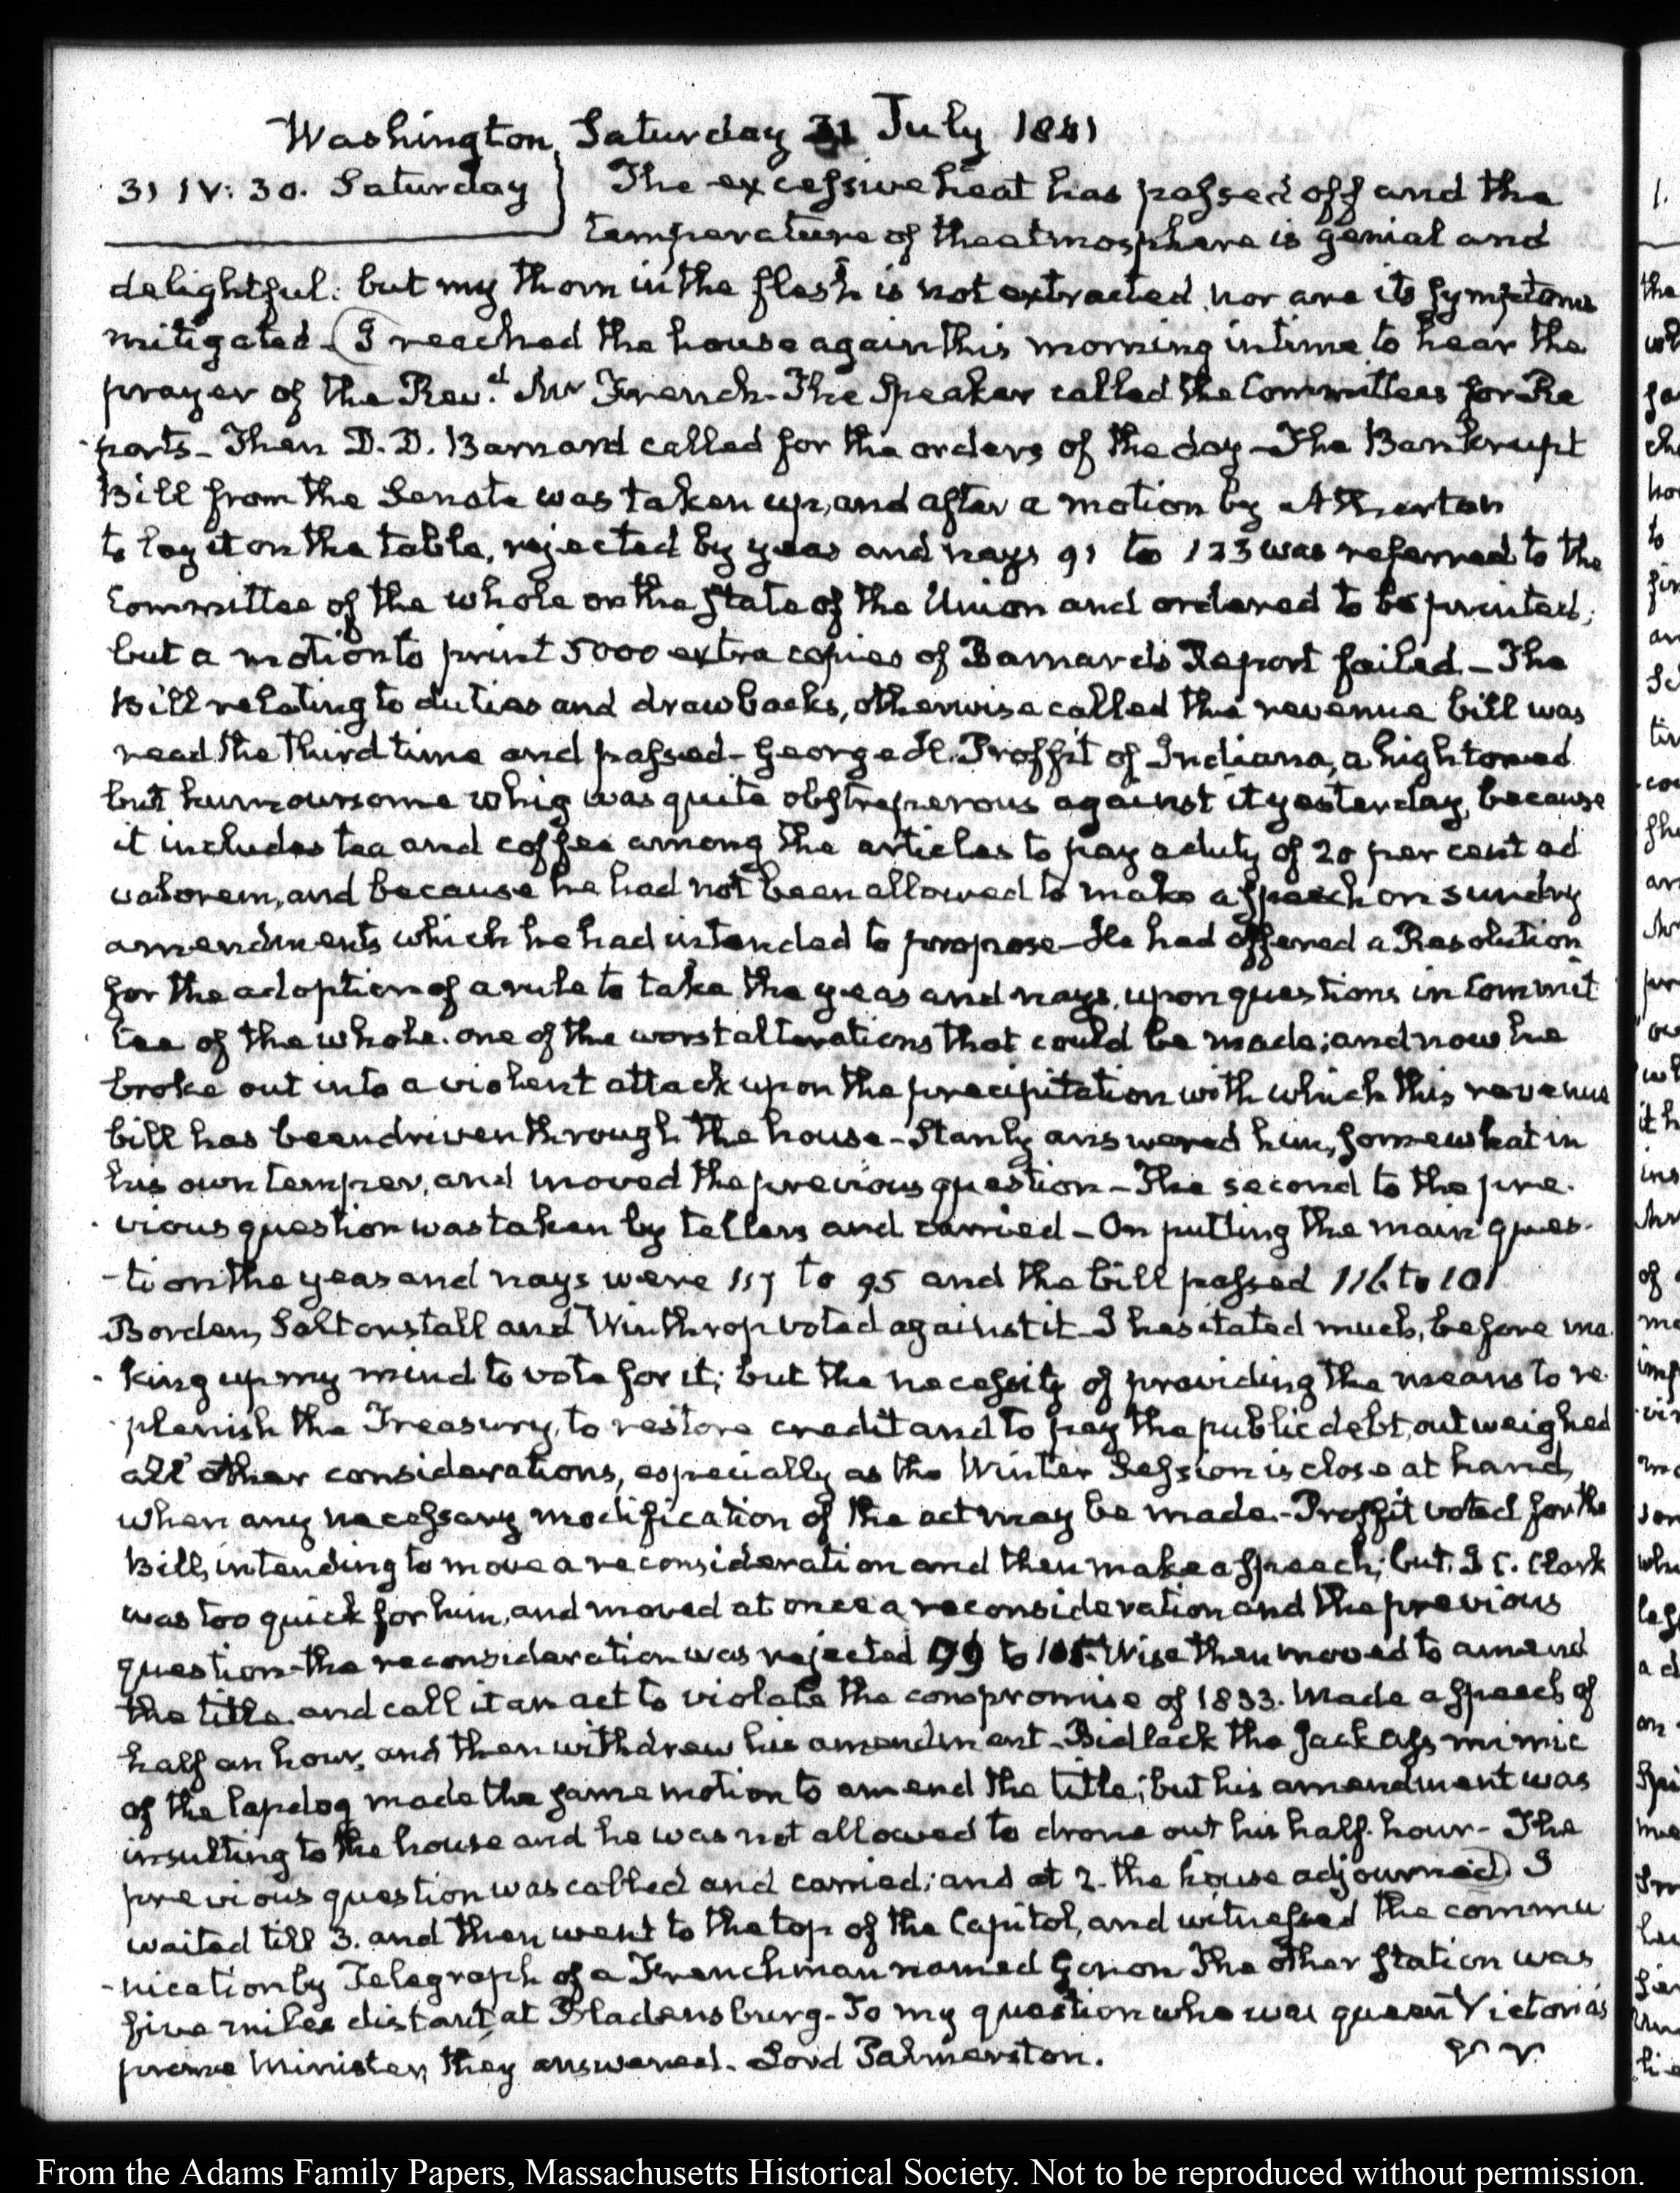 Washington, Saturday 31 July 1841
31 IV: 30. Saturday } The excessive heat has passed off and the
temperature of the atmosphere is genial and
delightful: but my thorn in the flesh is not extracted, nor are its symptoms
mitigated. (I reached the house again this morning in time to hear the
prayer of the Revd. Mr French. The Speaker called the Committees for Re
ports_ Then D. D. Barnard called for the orders of the day_ The Bankrupt
Bill from the Senate was taken up, and after a motion by Atherton
to lay it on the table, rejected by yeas and nays 91 to 123 was referred to the
Committee of the whole on the state of the Union and ordered to be printed;
but a motion to print 5000 extra copies of Barnard's Report failed_ The
Bill relating to duties and drawbacks, otherwise called the revenue bill was
read the third time and passed_ George H. Proffit of Indiana, a hightoned
but humoursome whig was quite obstreperous against it yesterday, because
it includes tea and coffee among the articles to pay a duty of 20 per cent ad
valorem, and because he had not been allowed to make a speech on sundry
amendments which he had intended to propose_ He had offered a Resolution
for the adoption of a rule to take the yeas and nays, upon questions in Commit
tee of the whole. one of the worst alterations that could be made; and now he
broke out into a violent attack upon the precipitation with which this revenue
bill has been driven through the house_ Stanly answered him, somewhat in
his own temper, and moved the previous question_ The second to the pre-
vious question was taken by tellers and carried_ On putting the main ques-
-tion the yeas and nays were 117 to 95 and the bill passed 116 to 101
Borden, Saltonstall and Winthrop voted against it_ I hesitated much, before ma-
king up my mind to vote for it; but the necessity of providing the means to re-
plenish the Treasury, to restore credit and to pay the public debt, outweighed
all other considerations, especially as the Winter Session is close at hand,
when any necessary modification of the act may be made._ Proffit voted for the
Bill, intending to move a reconsideration and then make a speech; but J C. Clark
was too quick for him, and moved at once a reconsideration and the previous
question_ the reconsideration was rejected 99 to 105. Wise then moved to amend
the title, and call it an act to violate the compromise of 1833. Made a speech of
half an hour, and then withdrew his amendment_ Bidlack the Jackass mimic
of the lapdog made the same motion to amend the title; but his amendment was
insulting to the house and he was not allowed to drone out his half-hour_ The
previous question was called and carried; and at 2. the house adjourned.) I
waited till 3. and then went to the top of the Capitol, and witnessed the commu
-nication by Telegraph of a Frenchman named Gonon The other station was
five miles distant, at Bladensburg_ To my question who was queen Victoria's
prime Minister, they answered_ Lord Palmerston.
From the Adams Family Papers, Massachusetts Historical Society. Not to be reproduced without permission.